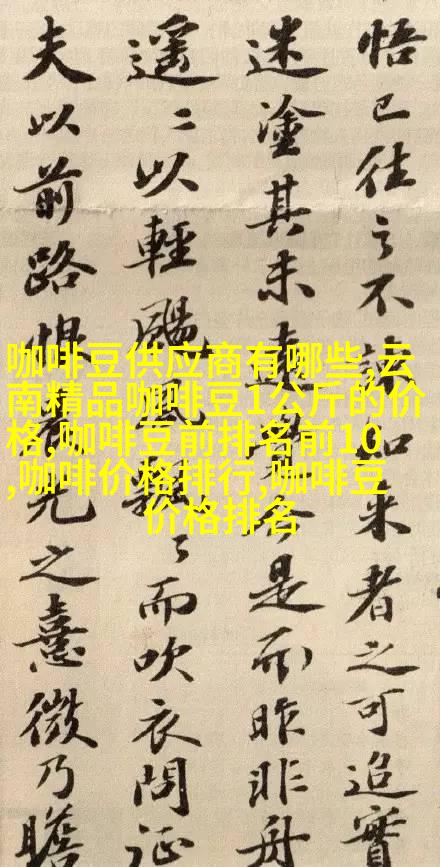 悟已往之不諫知来者之可追實
迷塗其未遠今是而昨非舟
遥〻以輕颺風飄〻而吹衣問征
夫以前路恨晨光之熹微乃瞻
咖啡豆供应商有哪些,云
南精品咖啡豆1公斤的价
格,咖啡豆前排名前10
,咖啡价格排行,咖啡豆
价格排名